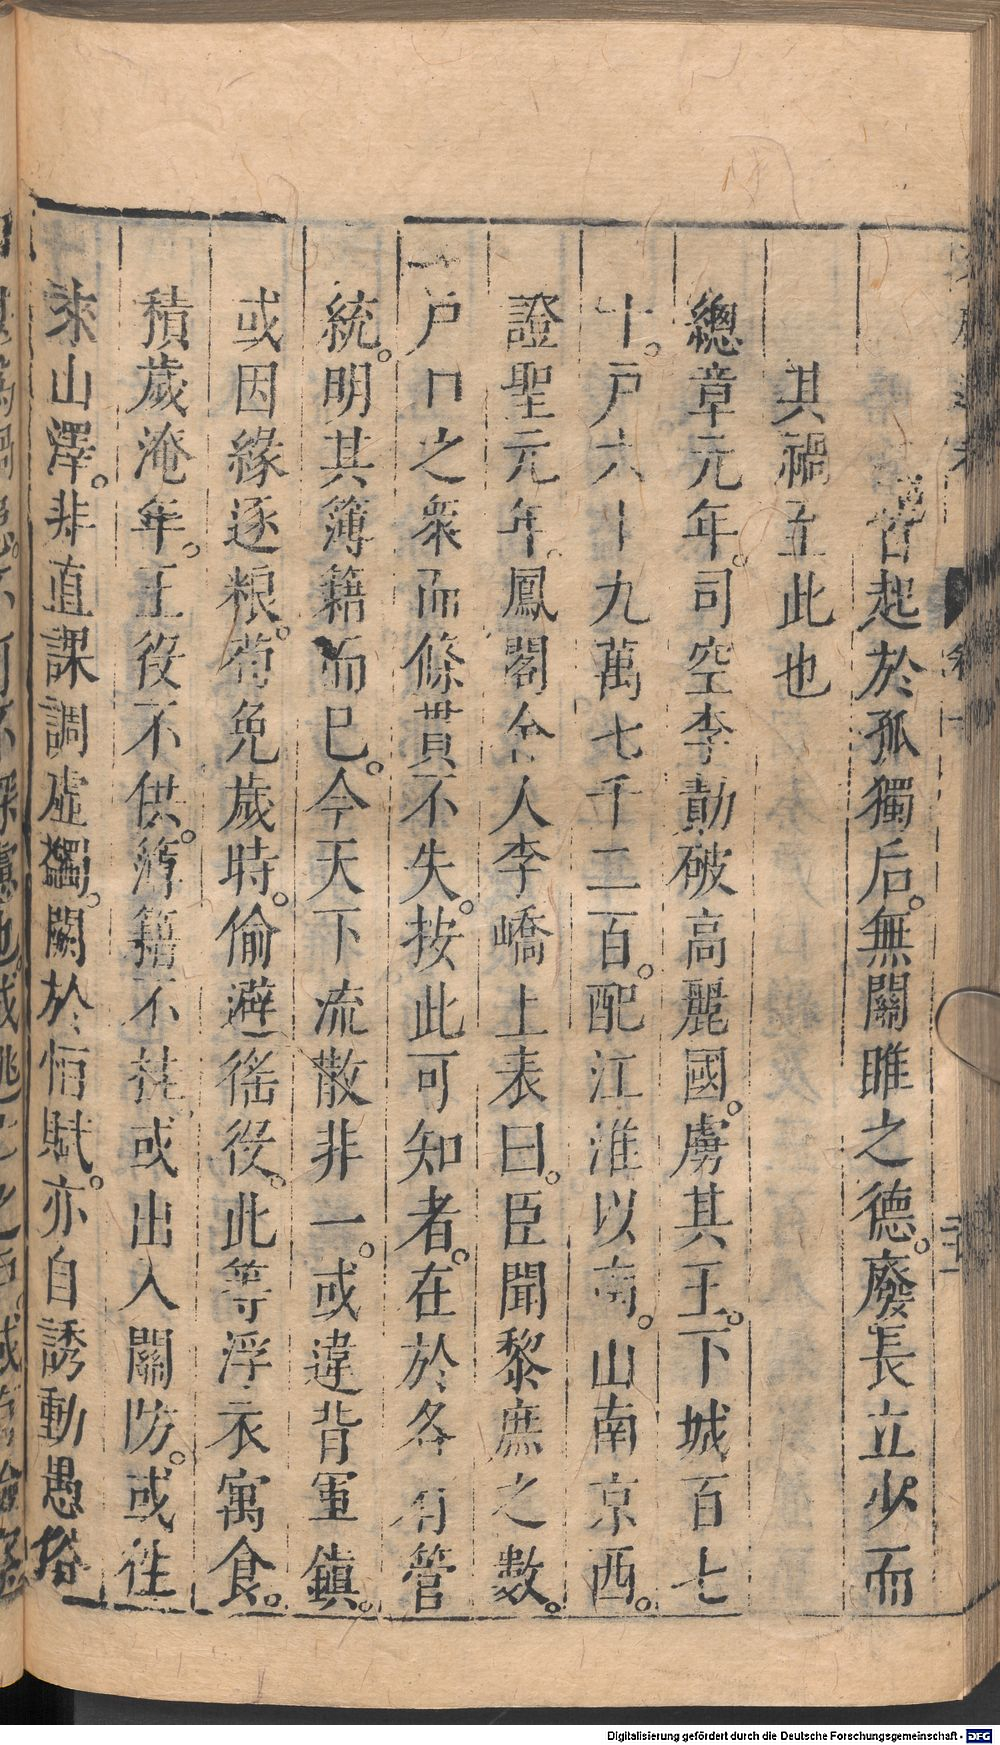 古起於孤獨后。無關雎之德。廢長立少。而
其禍至此也
總章元年。司空李勣破高麗國。虜其王。下城百七
十。戸六十九萬七千二百。配江淮以南。山南京西。
證聖元年。鳳閣舍人李嶠上表曰。臣聞黎庶之數。
戸口之衆而條貫不失。按此可知者。在於各有管
統。明其簿籍而已。今天下流散非一。或違背軍鎮。
或因緣逐粮。苟免歲時。偷避徭役。此等浮衣寓食。
積歲淹年。王役不供。簿籍不挂。或出入關防。或往
來山澤。非直課調虛蠲。闕於恒賦。亦自誘動愚俗
Digitalisierung gefördert durch die Deutsche Forschungsgemeinschaft - DFG